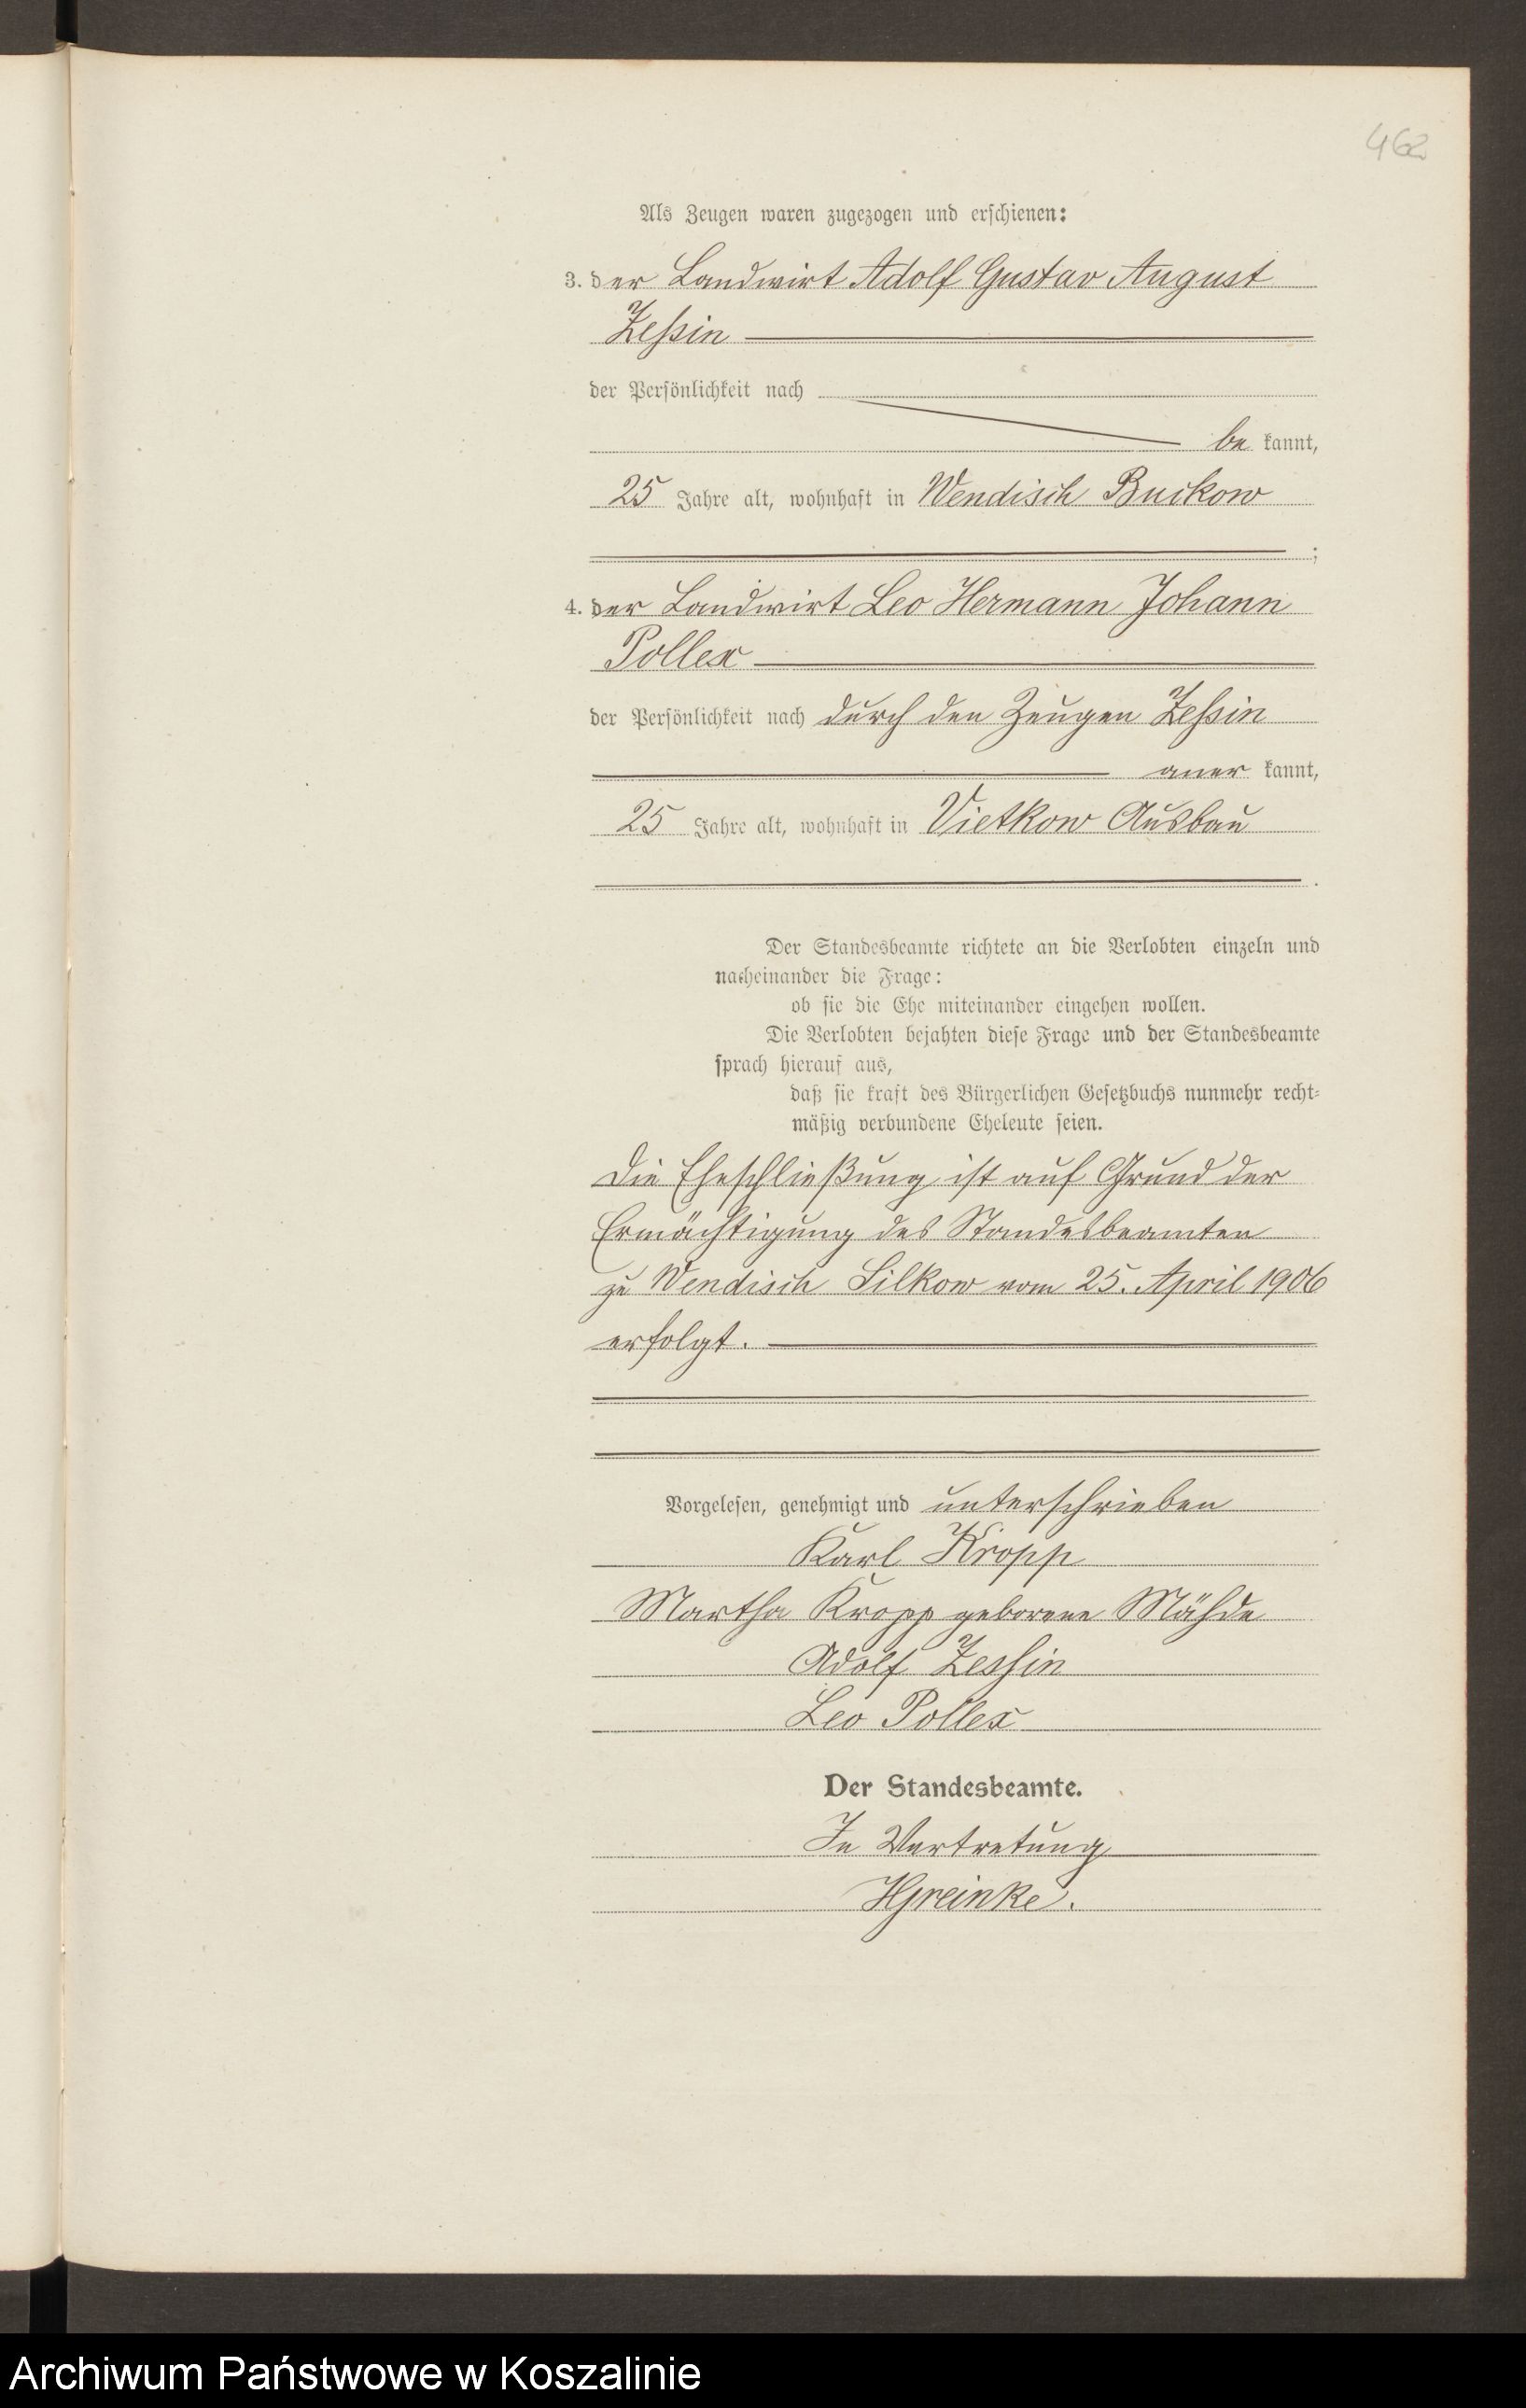 462
Als Zeugen waren zugezogen und erschienen:
3. der Landwirt Adolf Gustav August
Zeßin
der Persönlichkeit nach
be kannt,
25 Jahre alt, wohnhaft in Wendisch Buckow
;
4. der Landwirt Leo Hermann Johann
Pollex
der Persönlichkeit nach durch den Zeugen Zeßin
aner kannt,
25 Jahre alt, wohnhaft in Vietkow Ausbau
.
Der Standesbeamte richtete an die Verlobten einzeln und
nacheinander die Frage:
ob sie die Ehe miteinander eingehen wollen.
Die Verlobten bejahten diese Frage und der Standesbeamte
sprach hierauf aus,
daß sie kraft des Bürgerlichen Gesetzbuchs nunmehr recht-
mäßig verbundene Eheleute seien.
Die Eheschließung ist auf Grund der
Ermächtigung des Standesbeamten
zu Wendisch Silkow vom 25. April 1906
erfolgt.
Vorgelesen, genehmigt und unterschrieben
Karl Kropp
Martha Kropp geborene Mähde
Adolf Zessin
Leo Pollex
Der Standesbeamte.
In Vertretung
HGreinke.
Archiwum Państwowe w Koszalinie